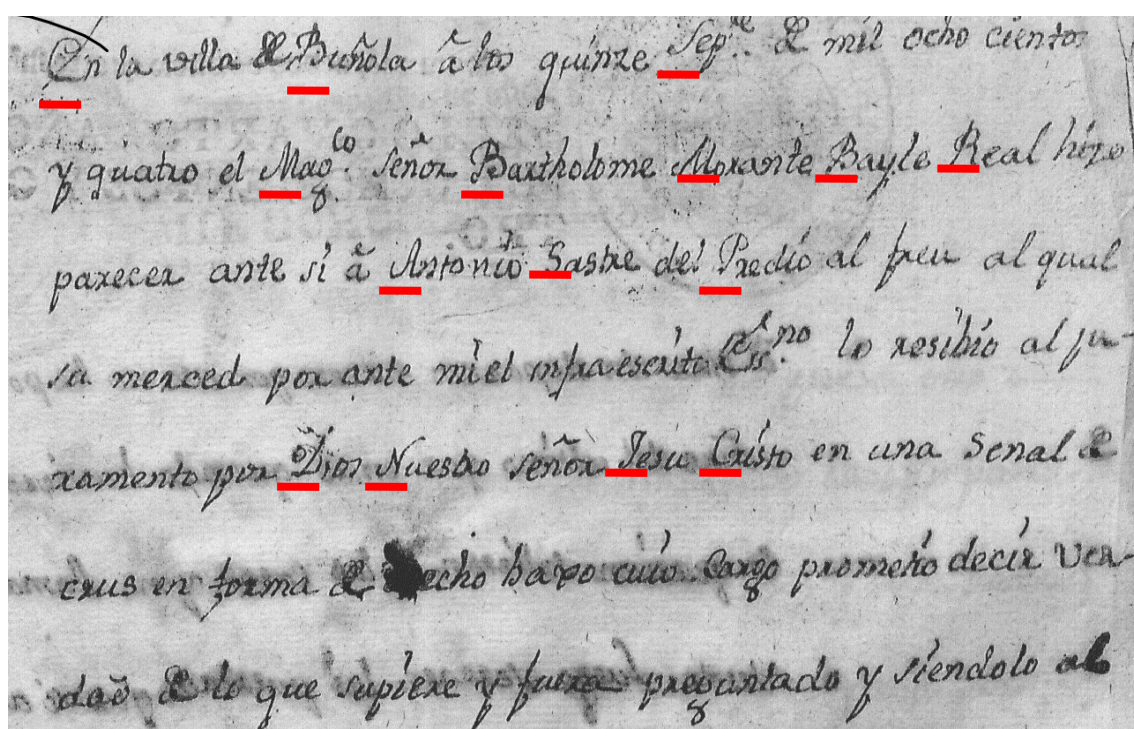 En la villa de Buñola â los quinze Sep.re de mil ocho cientos
y quatro el Mag.co señor Bartholome Morante Bayle Real hizo
parecer ante si â Antonio Sastre del Predio al freu al qual
sa merced por ante mi el infraescrito Ess.no lo resibio al ju-
ramento por Dios Nuestro señor Jesu Cristo en una Senal de
crus en forma de echo baxo cuio Cargo prometio decir ver-
dad de lo que supiere y fuera preguntado y siendolo al